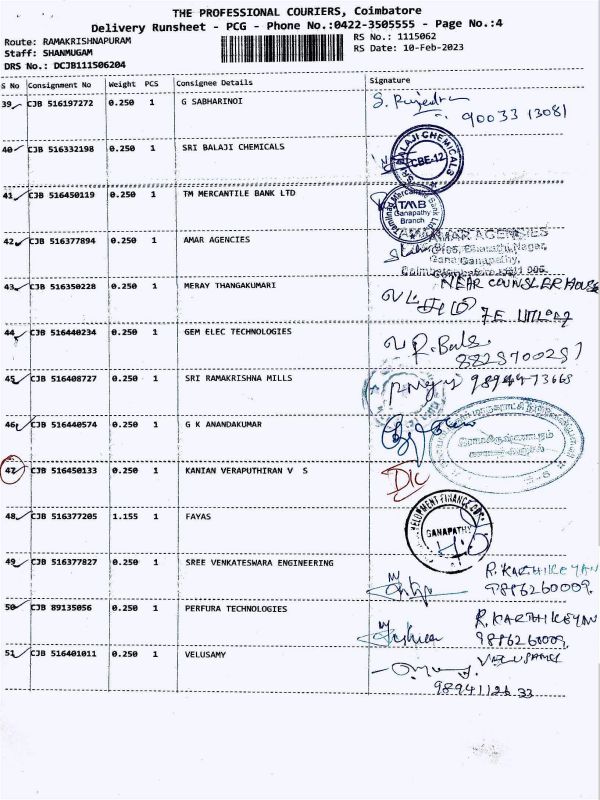 THE PROFESSIONAL COURIERS, Coimbatore
Delivery Runsheet - PCG - Phone No.:0422-3505555 - Page No.:4
Route: RAMAKRISHNAPURAM
RS No.: 1115062
Staff: SHANMUGAM
RS Date: 10-Feb-2023
DRS No.: DCJB111506204
S No Consignment No Weight PCS Consignee Details Signature
39 CJB 516197272 0.250 1 G SABHARINOI
90033 13081
40 CJB 516332198 0.250 1 SRI BALAJI CHEMICALS
SRI BALAJI CHEMICALS
CBE-12
41 CJB 516450119 0.250 1 TM MERCANTILE BANK LTD
Tamilnad Mercantile Bank Ltd
TMB
Ganapathy
Branch
42 CJB 516377894 0.250 1 AMAR AGENCIES
AMAR AGENCIES
Ganapathy,
43 CJB 516350228 0.250 1 MERAY THANGAKUMARI
NEAR COUNSLER HOUSE
44 CJB 516440234 0.250 1 GEM ELEC TECHNOLOGIES
R. Bala
45 CJB 516408727 0.250 1 SRI RAMAKRISHNA MILLS
46 CJB 516440574 0.250 1 G K ANANDAKUMAR
47 CJB 516450133 0.250 1 KANIAN VERAPUTHIRAN V S
D/C
48 CJB 516377205 1.155 1 FAYAS
GANAPATHY
49 CJB 516377827 0.250 1 SREE VENKATESWARA ENGINEERING
R. KARTHIKEYAN
9886260009.
50 CJB 89135056 0.250 1 PERFURA TECHNOLOGIES
R. KARTHIKEYAN
9886260009.
51 CJB 516401011 0.250 1 VELUSAMY
VELUSAMY